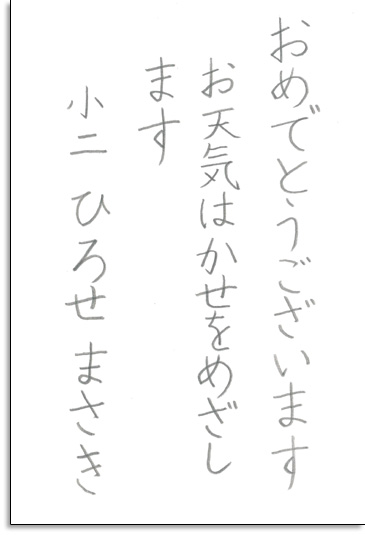 おめでとうございます
お天気はかせをめざし
ます
小二 ひろせ まさき